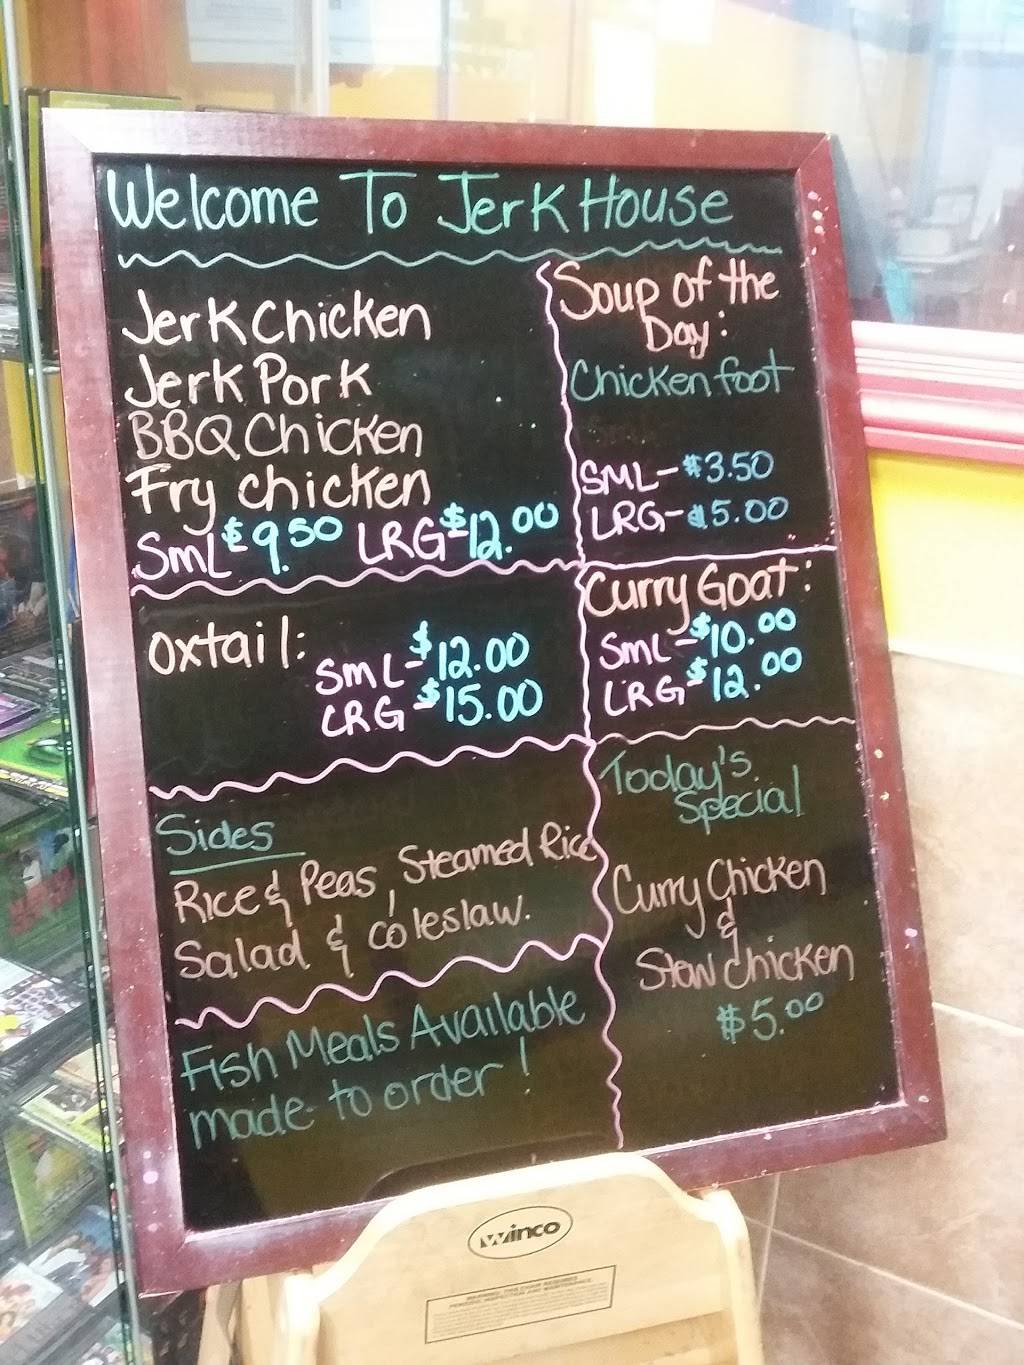 Welcome To Jerk House
Jerk Chicken
Jerk Pork
BBQ Chicken
Fry chicken
SmL $9.50 LRG $12.00
Soup of the
Day:
Chicken foot
SML- $3.50
LRG- $5.00
Oxtail:
SmL- $12.00
LRG $15.00
Curry Goat:
SmL- $10.00
LRG $12.00
Sides
Rice & Peas, Steamed Rice
Salad & coleslaw.
Fish Meals Available
made to order!
Today's
Special
Curry Chicken
&
Stew Chicken
$5.00
winco